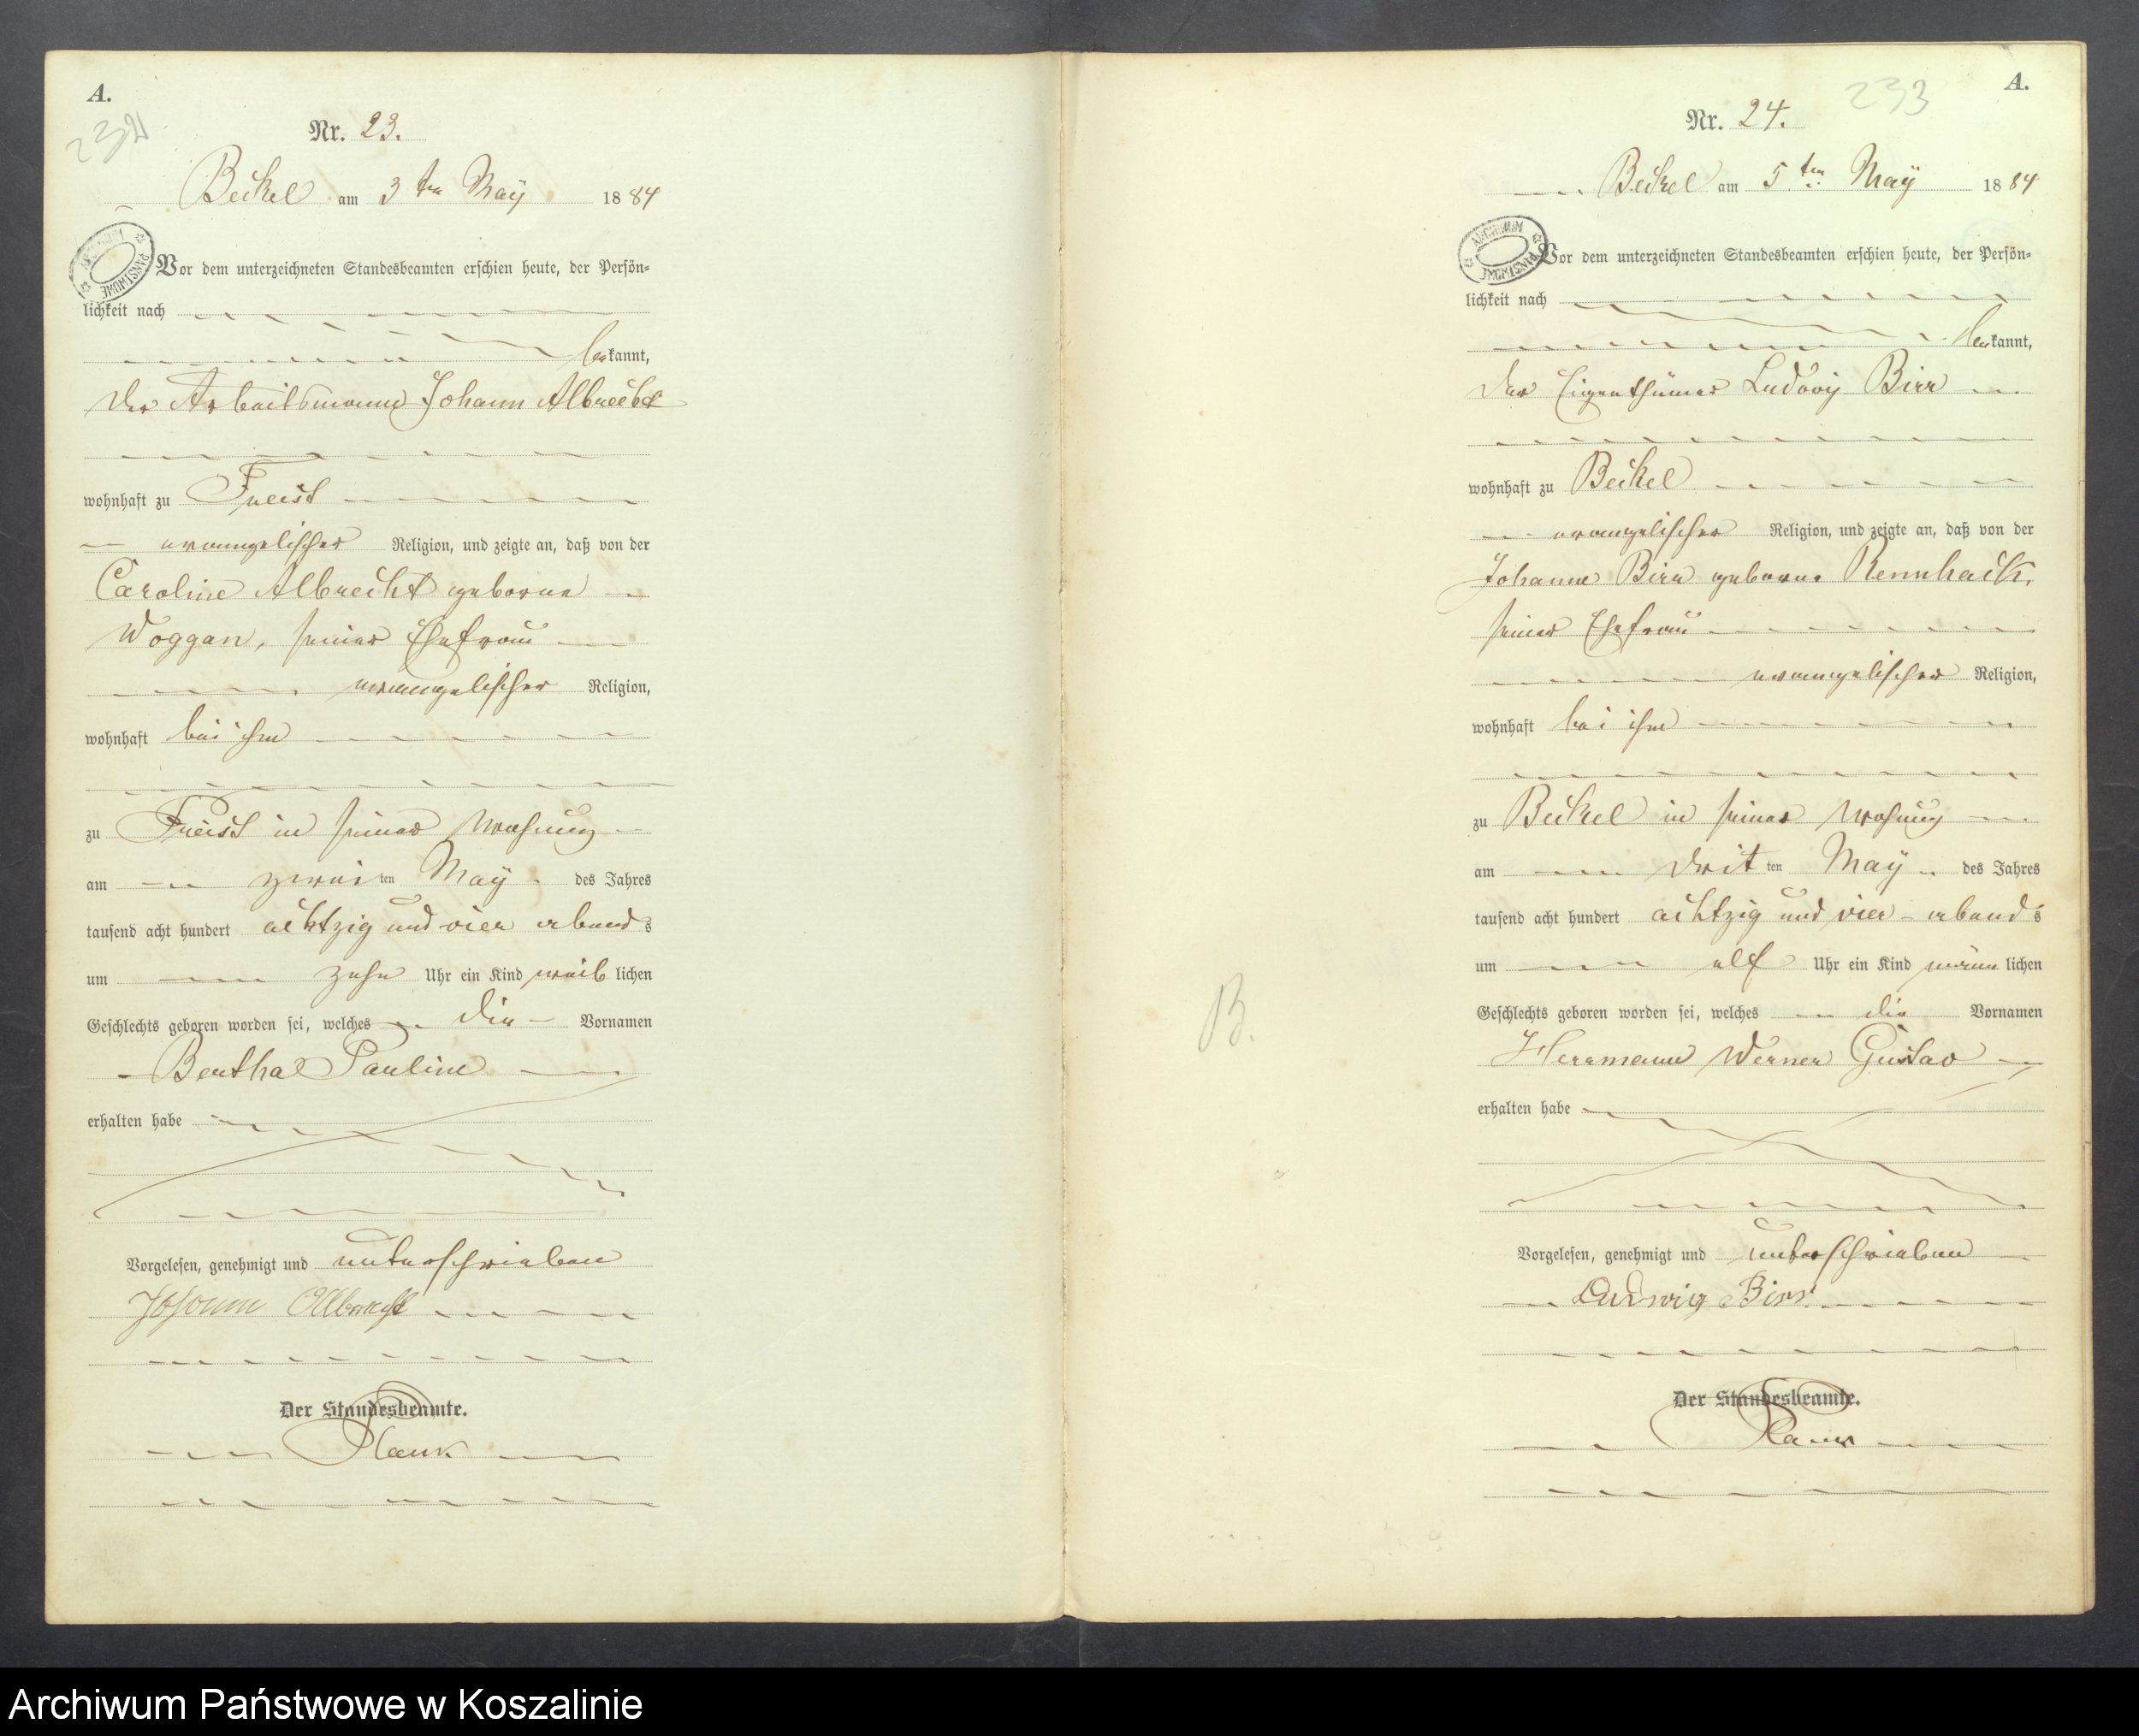 A.
232
Nr. 23.
Beckel am 3ten May 1884
Vor dem unterzeichneten Standesbeamten erschien heute, der Persön-
lichkeit nach
bekannt,
der Arbeitsmann Johann Albrecht
wohnhaft zu Freist
evangelischer Religion, und zeigte an, daß von der
Caroline Albrecht geborne
Woggan, seiner Ehefrau
evangelischer Religion,
wohnhaft bei ihm
zu Freist in seiner Wohnung
am zweiten May des Jahres
tausend acht hundert achtzig und vier abends
um zehn Uhr ein Kind weiblichen
Geschlechts geboren worden sei, welches die Vornamen
Bertha Pauline
erhalten habe
Vorgelesen, genehmigt und unterschrieben
Johann Albrecht
Der Standesbeamte.
ARCHIWUM PAŃSTWOWE
233
A.
Nr. 24.
Beckel am 5ten May 1884
Vor dem unterzeichneten Standesbeamten erschien heute, der Persön-
lichkeit nach
bekannt,
der Eigenthümer Ludwig Birr
wohnhaft zu Beckel
evangelischer Religion, und zeigte an, daß von der
Johanne Birr geborne Rennhack,
seiner Ehefrau
evangelischer Religion,
wohnhaft bei ihm
zu Beckel in seiner Wohnung
am dritten May des Jahres
tausend acht hundert achtzig und vier abends
um elf Uhr ein Kind männlichen
Geschlechts geboren worden sei, welches die Vornamen
Herrmann Werner Gustav
erhalten habe
Vorgelesen, genehmigt und unterschrieben
Ludwig Birr
Der Standesbeamte.
ARCHIWUM PAŃSTWOWE
B.
Archiwum Państwowe w Koszalinie